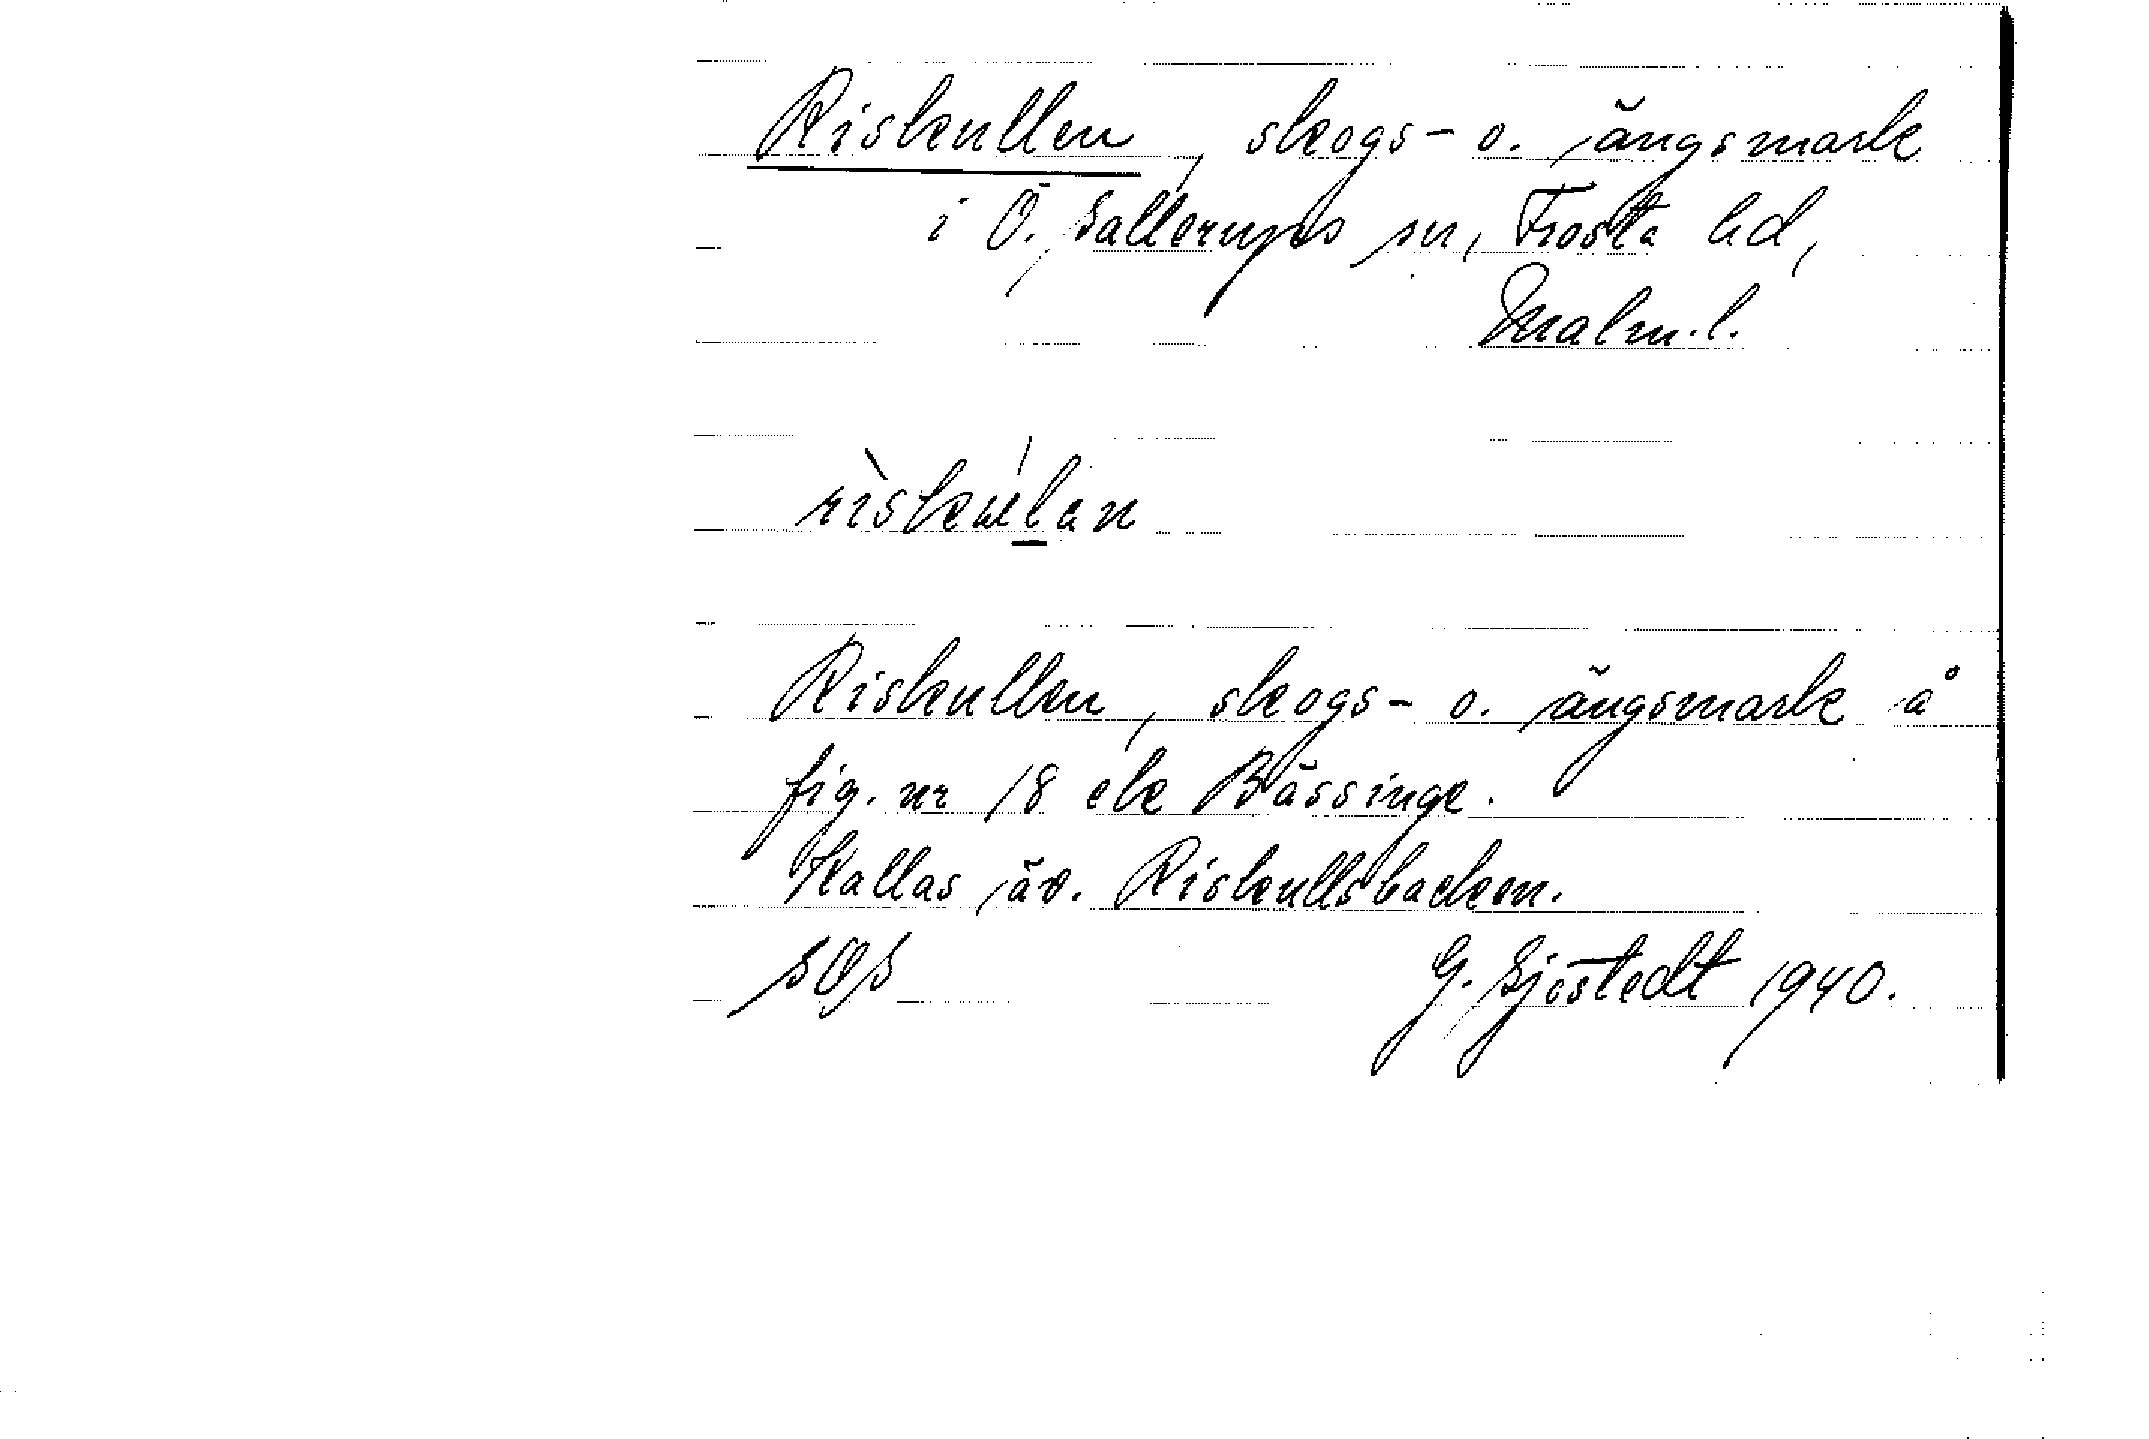 Riskullen, skogs- o. ängsmark
i Ö. Sallerups sn, Frosta hd,
Malm.l.
rìskúlan
Riskullen, skogs- o. ängsmark å
fig. nr 18 ek Bässinge.
Kallas äv. Riskullsbacken.
SOS G. Sjöstedt 1940.